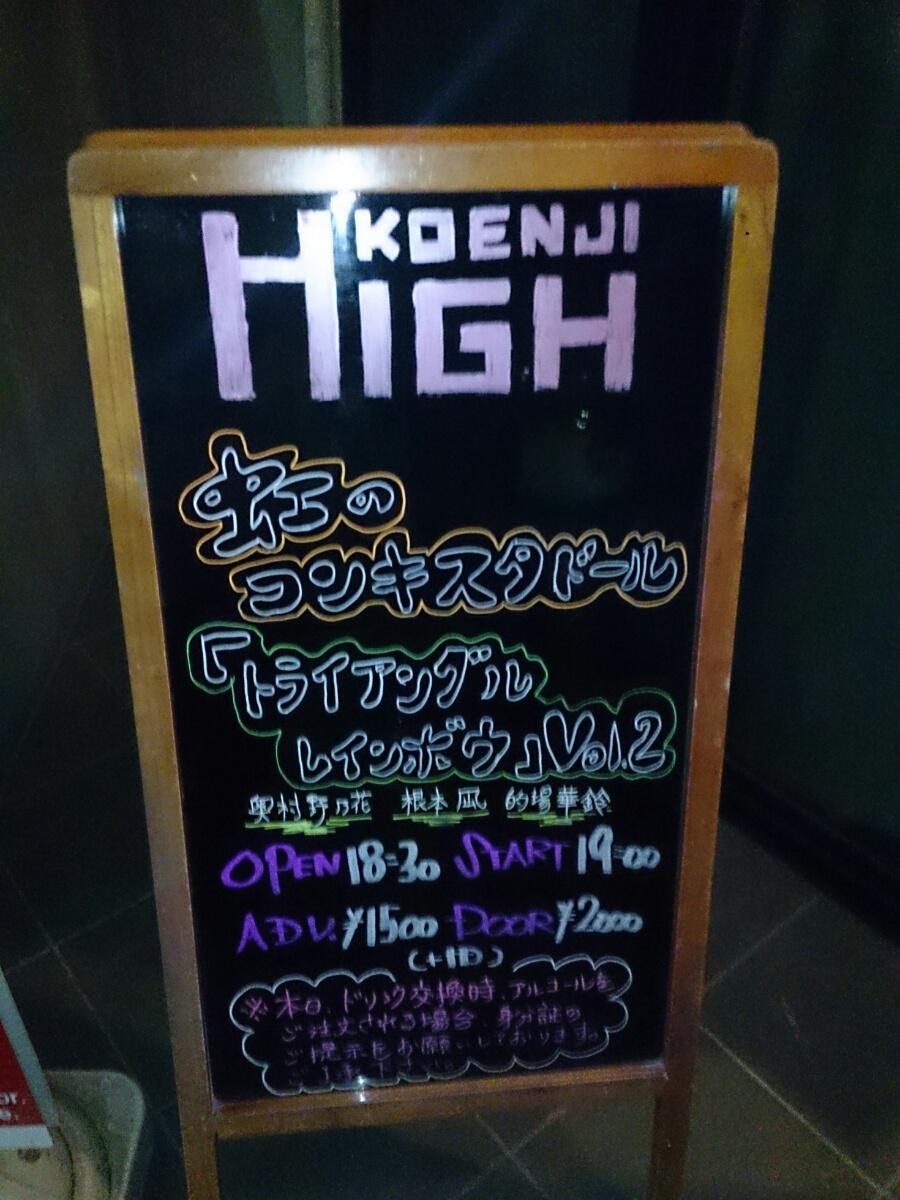 KOENJI
HIGH
虹の
コンキスタドール
『トライアングル
レインボウ』Vol.2
奥村野乃花 根本凪 的場華鈴
OPEN 18:30 START 19:00
ADV. ¥1500 DOOR ¥2000
(+1D)
※本日、ドリンク交換時、アルコールを
ご注文される場合、身分証の
ご提示をお願いしております。